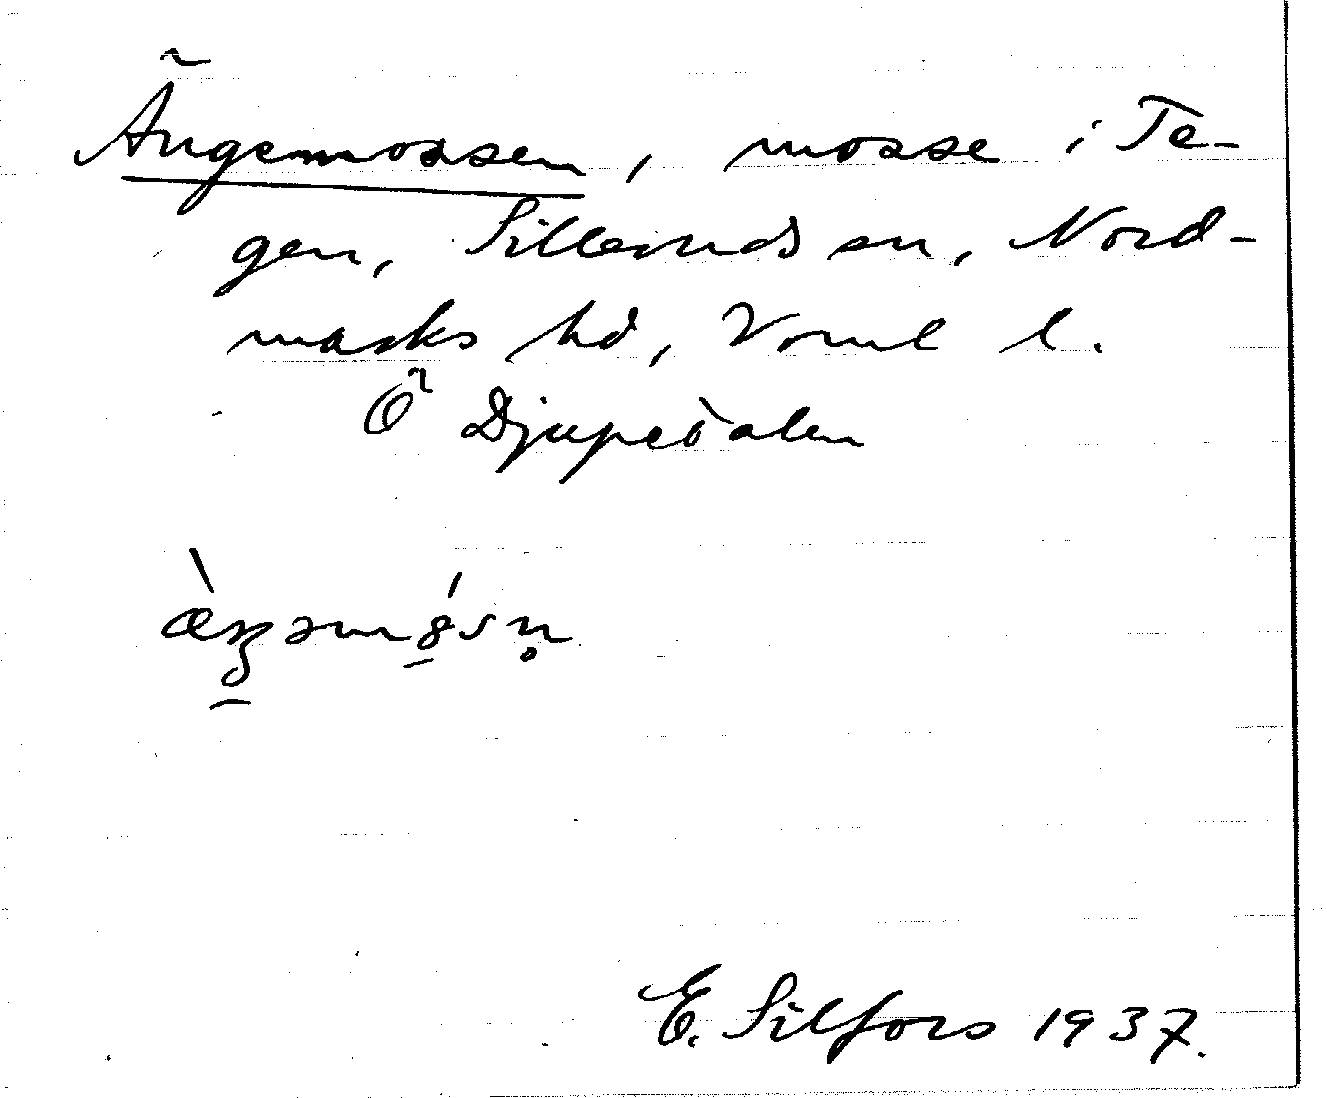 Ängemossen, mosse i Te-
gen, Silleruds sn, Nord-
marks hd, Vrml l.
Ö Djupedalen
E. Silfors 1937.